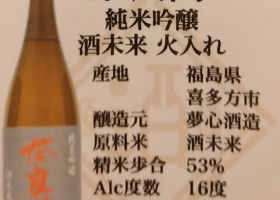 純米吟醸
酒未来 火入れ
産地 福島県
喜多方市
醸造元 夢心酒造
原料米 酒未来
精米歩合 53%
Alc度数 16度
純米吟醸